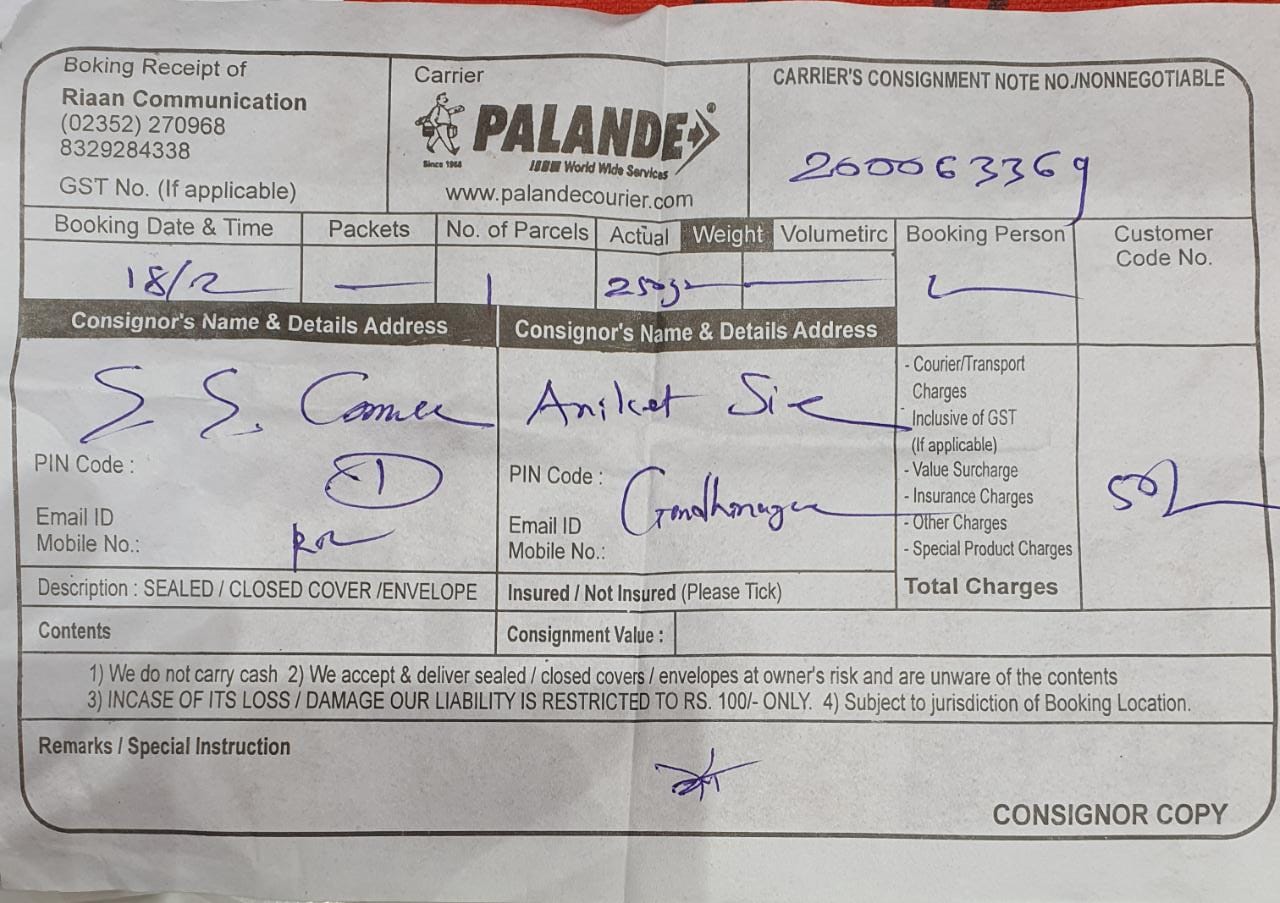 Boking Receipt of
Riaan Communication
(02352) 270968
8329284338
GST No. (If applicable)
Carrier
PALANDE
Since 1968
World Wide Services
www.palandecourier.com
CARRIER'S CONSIGNMENT NOTE NO./NONNEGOTIABLE
200063369
Booking Date & Time
18/2
Packets
—
No. of Parcels
1
Actual Weight Volumetirc
250g
Booking Person
Customer
Code No.
Consignor's Name & Details Address
S. S.
PIN Code :
Email ID
Mobile No.:
Consignor's Name & Details Address
Aniket Sir
PIN Code :
Gandhinagar
Email ID
Mobile No.:
- Courier/Transport
Charges
Inclusive of GST
(If applicable)
- Value Surcharge
- Insurance Charges
- Other Charges
- Special Product Charges
Total Charges
50/-
Description : SEALED / CLOSED COVER /ENVELOPE
Insured / Not Insured (Please Tick)
Contents
Consignment Value :
1) We do not carry cash 2) We accept & deliver sealed / closed covers / envelopes at owner's risk and are unware of the contents
3) INCASE OF ITS LOSS / DAMAGE OUR LIABILITY IS RESTRICTED TO RS. 100/- ONLY. 4) Subject to jurisdiction of Booking Location.
Remarks / Special Instruction
CONSIGNOR COPY